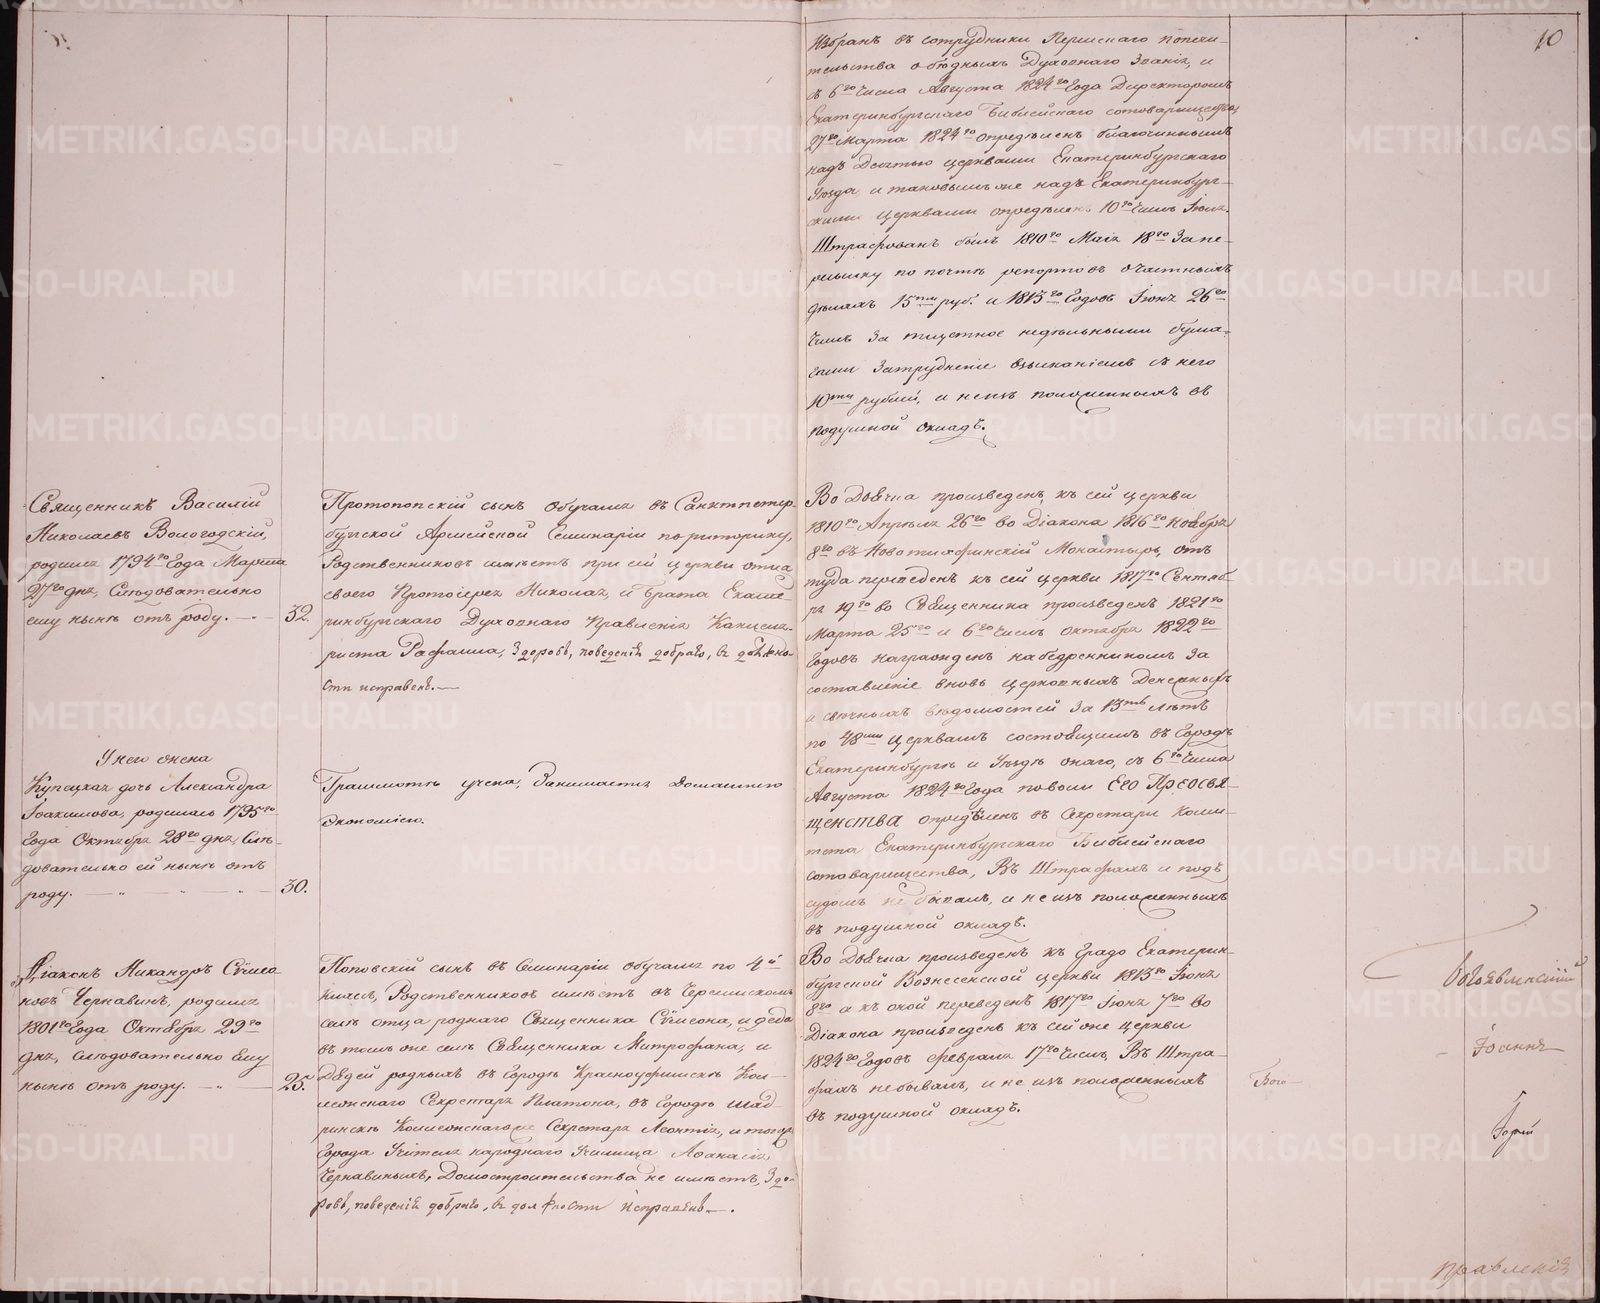 10
Избранъ въ сотрудники Пермскаго попечи-
тельства о бѣдныхъ Духовнаго Званія, и
съ 6го Числа Августа 1824го Года Директоромъ
Екатеринбургскаго Библейскаго сотоварищества,
27го Марта 1824го опредѣленъ благочиннымъ
надъ Десятью церквами Екатеринбургскаго
Уѣзда, и таковымъ же надъ Екатеринбург-
скими церквами опредѣленъ 10го Числъ Іюля.
Штрафованъ былъ 1810го Маія 18го За пе-
ресылку по почтѣ репортовъ о частныхъ
дѣлахъ 15ти руб. и 1813го Годовъ Іюня 26го
Числъ За тщетное недѣльными бума-
гами Затрудненіе взысканіемъ съ него
10ти рублей, и не изъ положенныхъ въ
подушной окладъ.
Священникъ Василій
Николаевъ Вологодскій,
родился 1794го Года Марта
27го дня, Слѣдовательно
ему нынѣ отъ роду. 32.
Протопопскій сынъ обучался въ Санктпетер-
бургской Армейской Семинаріи по риторику,
Родственниковъ имѣетъ при сей церкви отца
своего Протоіерея Николая, и брата Екате-
ринбургскаго Духовнаго Правленія Канцеля-
риста Рафаила, Здоровъ, поведенія добраго, въ должно-
сти исправенъ.
Во Дьячка произведенъ къ сей церкви
1810го Апрѣля 26го во Діакона 1816го Ноября
8го въ Новотихвинскій Монастырь, отъ
туда переведенъ къ сей церкви 1817го Сентяб-
ря 19го во Священника произведенъ 1821го
Марта 25го и 6го Числъ Октября 1822го
Годовъ награжденъ набедренникомъ За
составленіе вновь церковныхъ Денежныхъ
и свѣчныхъ вѣдомостей За 13ть лѣтъ
по 48ми церквамъ состоящимъ въ Городѣ
Екатеринбургѣ и Уѣздѣ онаго, съ 6го Числа
Августа 1824го Года по волѣ Его Преосвя-
щенства опредѣленъ въ Секретари Коми-
тета Екатеринбургскаго Библейскаго
сотоварищества, Въ Штрафахъ и подъ
судомъ не бывалъ, и не изъ положенныхъ
въ подушной окладъ.
У него жена
Купецкая дочь Александра
Іоакимова, родилась 1795го
Года Октября 28го дня, Слѣ-
довательно ей нынѣ отъ
роду. 30.
Грамотѣ учена, Занимается домашнею
Экономіею.
Діаконъ Никандръ Сѵмео-
новъ Чернавинъ, родился
1801го Года Октября 29го
дня, слѣдовательно Ему
нынѣ отъ роду. 25.
Поповскій сынъ въ Семинаріи обучался по 4й
классъ, Родственниковъ имѣетъ въ
селѣ отца роднаго Священника Сѵмеона, и деда
въ томъ же селѣ Священника Митрофана, и
Дядей родныхъ въ Городѣ Красноуфимскѣ Кол-
лежскаго Секретаря Платона, въ Городѣ Шад-
ринскѣ Коллежскаго же Секретаря Леонтія, и того
Города Учителя народнаго Училища Афанасія
Чернавиныхъ, Домостроительства не имѣетъ, Здо-
ровъ, поведенія добраго, въ должности исправенъ.
Во Дьячка произведенъ къ Градо Екатерин-
бургской Вознесенской церкви 1813го Іюня
8го а къ оной переведенъ 1817го Іюня 7го во
Діакона произведенъ къ сей же церкви
1824го Годовъ февраля 17го Числъ, Въ Штра-
фахъ не бывалъ, и не изъ положенныхъ
въ подушной окладъ.
Бого-
Богоявленскій
Іоаннъ
правленія